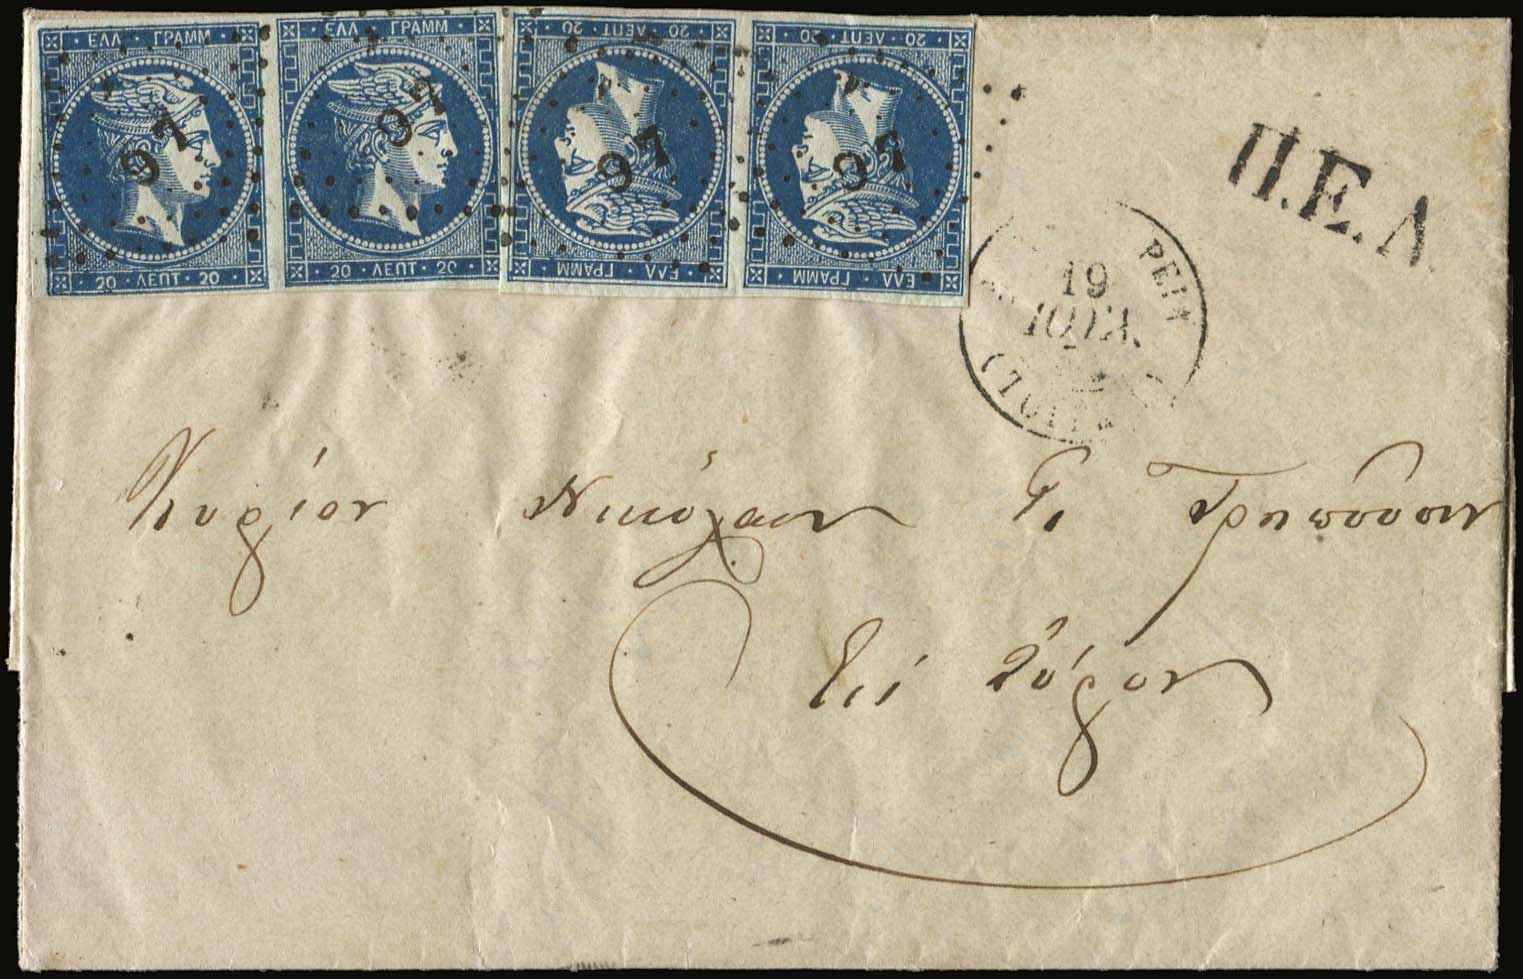 ΕΛΛ · ΓΡΑΜΜ
20 · ΛΕΠΤ · 20
97
ΕΛΛ · ΓΡΑΜΜ
20 · ΛΕΠΤ · 20
97
ΕΛΛ · ΓΡΑΜΜ
20 · ΛΕΠΤ · 20
97
ΕΛΛ · ΓΡΑΜΜ
20 · ΛΕΠΤ · 20
97
Π.Ε.Λ.
19
ΙΟΥΛ.
Κυρίον Νικόλαον
Εις Σύρον